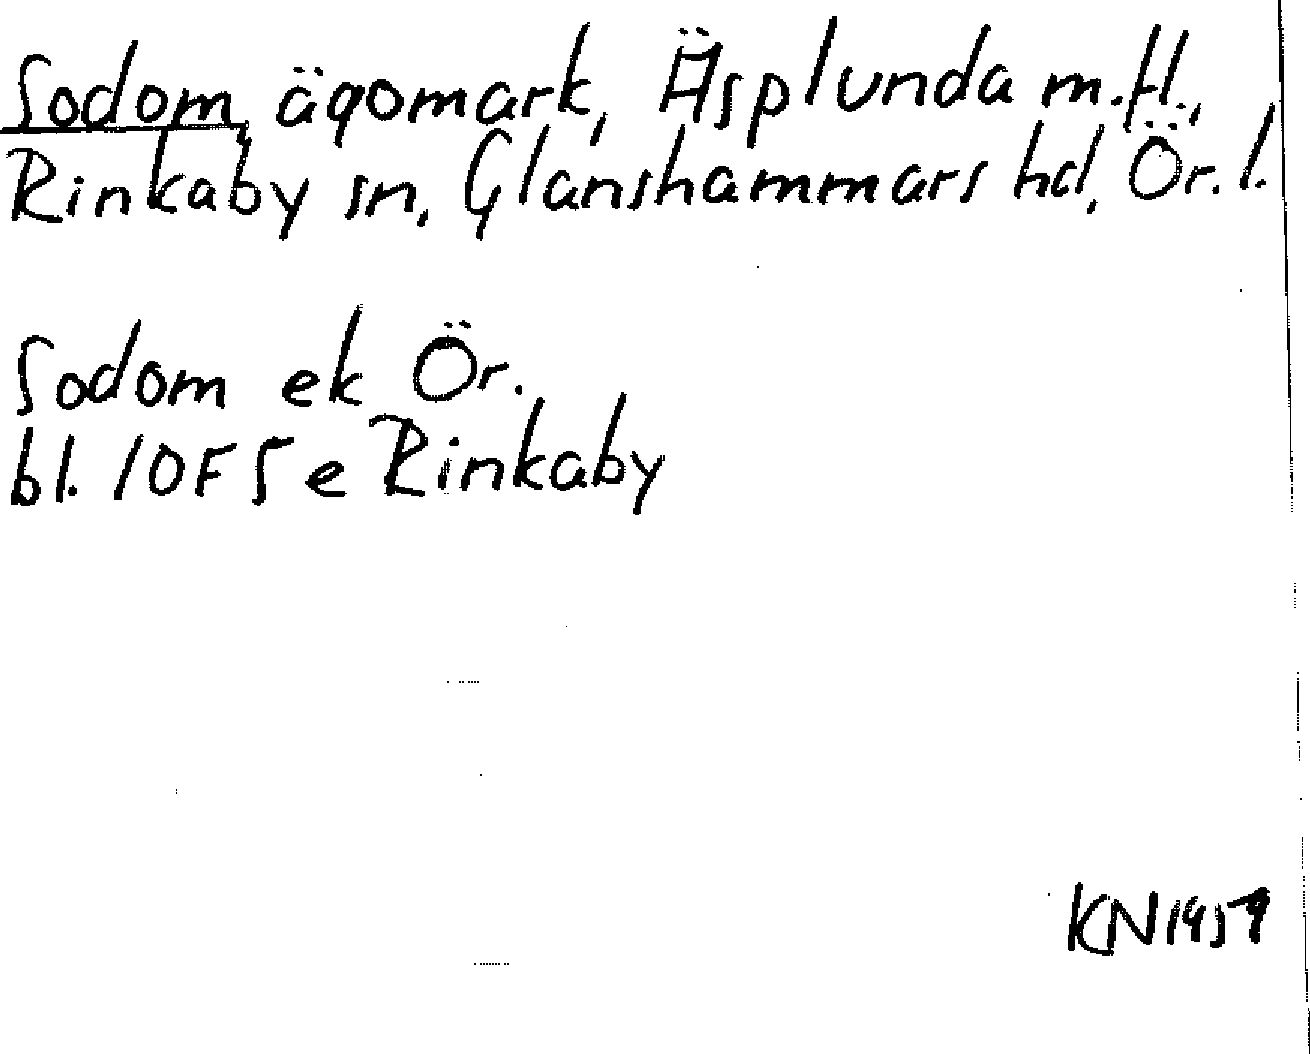 Sodom, ägomark, Äsplunda m.fl.,
Rinkaby sn, Glanshammars hd, Ör. l.
Sodom ek Ör.
bl. 10F5e Rinkaby
KN1959